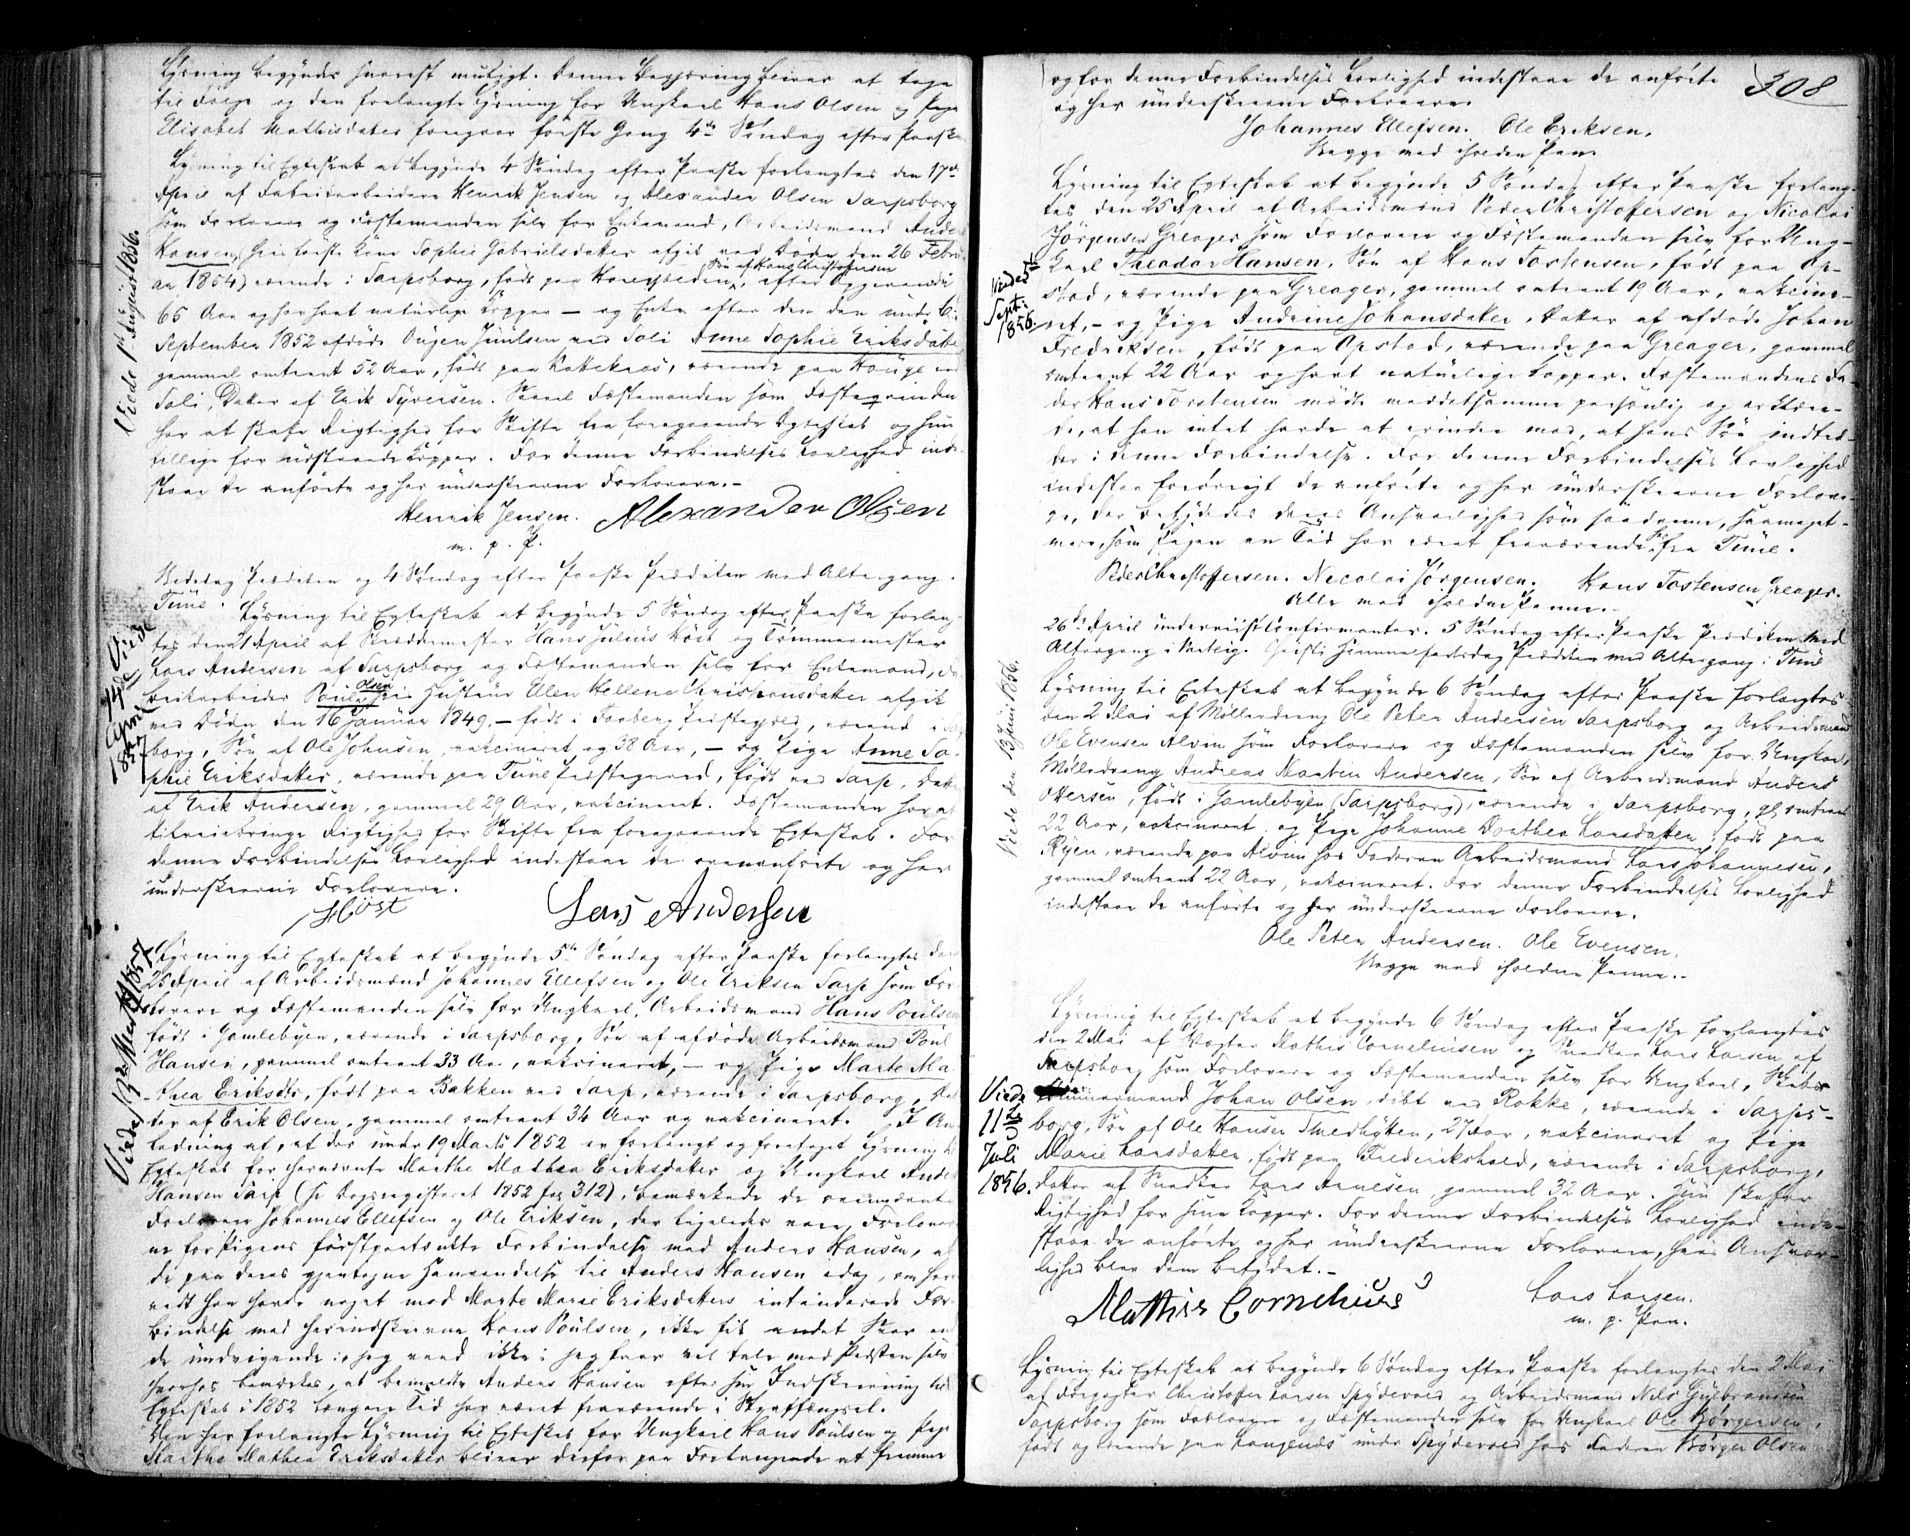 Lysning begyndes snarest muligt. Denne Begjæring bliver at tage
til Følge og den forlangte Lysning for Ungkarl Hans Olsen og Pige
Elisabet Mathisdatter foregaar første Gang 4de Søndag efter Paaske
Lysning til Egteskab at begynde 4 Søndag efter Paaske forlangtes den 17de
April af Fabrikarbeidere Henrik Jensen og Alexander Olsen Sarpsborg
som Forlovere og Fæstemanden selv for Enkemand, Arbeidsmand Anders
Hansen, (hvis første Kone Sophie Gabrielsdatter afgik ved Døden den 26 Febru-
ar 1854) værende i Sarpsborg, født paa
Søn af Hans Christophersen
efter Opgivende
65 Aar og har havt naturlige Kopper – og Enke efter den den under 6
September 1852 afdøde Juulsen ved Soli Anne Sophie Eriksdatter
gammel omtrent 52 Aar, født paa værende paa
Soli, Datter af Erik Syversen. Saavel Fæstemanden som Fæsteqvinden
har at skaffe Rigtighed for Skifte fra foregaaende Egteskab og hun
tillige for udstaaede Kopper. For denne Forbindelses Lovlighed inde-
staae de anførte og her underskrevne Forlovere. –
Henrik Jensen. Alexander Olsen
m. p. P.
Viede 1ste August 1856.
Bededag Prædiken og 4 Søndag efter Paaske Prædiken med Altergang.
Tune. Lysning til Egteskab at begynde 5 Søndag efter Paaske forlang-
tes den 21 April af Skræddermester Hans Julius Höst og Tömmermester
Lars Andersen af Sarpsborg og Fæstemanden selv for Enkemand, Fa-
brikarbeider
Olsen
Hustrue Ellen Hellene Christiansdatter afgik
ved Døden den 16 Januar 1849, – født i Præstegjeld, værende i Sarps-
borg, Søn af Ole Johnsen, vakcineret og 38 Aar, – og Pige Anne So-
phie Eriksdatter, værende paa Tune Præstegaard, født ved Sarp, Datter
af Erik Andersen, gammel 29 Aar, vakcineret. Fæstemanden har at
tilveiebringe Rigtighed for Skifte fra foregaaende Egteskab. For
denne Forbindelses Lovlighed indestaae de ovenanførte og her
underskrevne Forlovere.
Höst Lars Andersen
Viede
14de
April
1857
Lysning til Egteskab at begynde 5te Søndag efter Paaske forlangtes den
25 April af Arbeidsmænd Johannes Ellefsen og Ole Eriksen Sarp som For-
lovere og Fæstemanden selv for Ungkarl, Arbeidsmand Hans Poulsen
født i Gamlebyen, værende i Sarpsborg, Søn af afdøde Arbeidsmand Poul
Hansen, gammel omtrent 33 Aar, vakcineret, – og Pige Marte Ma-
thea Eriksdtr, født paa Bakken ved Sarp, værende i Sarpsborg, Dat-
ter af Erik Olsen, gammel omtrent 34 Aar og vakcineret. I An-
ledning af, at der under 19 Marts 1852 er forlangt og foretaget Lysning til
Egteskab for førnævnte Marthe Mathea Eriksdatter og Ungkarl Anders
Hansen Sarp (se Dagsregisteret 1852 pag 312), bemærkede de ovennævnte
Forlovere Johannes Ellefsen og Ole Eriksen, der ligeledes vare Forlovere
for Pigens førstpaatænkte Forbindelse med Anders Hansen, at
de paa deres gjentagne Henvendelse til Anders Hansen idag, om hor-
vidt han havde noget mod Marte Marie Eriksdatters intenderede For-
bindelse med herindskrevne Hans Poulsen, ikke fik andet Svar end
de undvigende: jeg veed ikke; jeg faar vel tale med Præsten selv
hvorhos bemærkes, at bemeldte Anders Hansen efter sin Indskrivning til
Egteskab i 1852 længere Tid har været fraværende i Strafængsel.
Den her forlangte Lysning til Egteskab for Ungkarl Hans Poulsen og Pige
Marthe Mathea Eriksdatter bliver derfor paa Forlangende at fremme
1857
308
og for denne Forbindelses Lovlighed indestaae de anførte
og her underskrevne Forlovere.
Johannes Ellefsen. Ole Eriksen.
Begge med iholden Pen.
Lysning til Egteskab at begynde 5 Søndag efter Paaske forlang-
tes den 25 April af Arbeidsmænd Peder Christoffersen og Nicolai
Jørgensen Greager som Forlovere og Fæstemanden selv for Ung-
karl Theodor Hansen, Søn af Hans Torstensen, født paa Op-
stad, værende paa Greager, gammel omtrent 19 Aar, vakcine-
ret, – og Pige Andrine Johansdatter, Datter af afdøde Johan
Fredriksen, født paa Opstad, værende paa Greager, gammel
omtrent 22 Aar og havt naturlige Kopper. Fæstemandens Fa-
der Hans Torstensen mødte meddetsamme personlig og erklære-
de, at han intet havde at erindre mod, at hans Søn indtræ-
der i denne Forbindelse. For denne Forbindelses Lovlighed
indestaae forøvrigt de anførte og her underskrevne Forlove-
re, der betydedes deres Ansvarlighed som saadanne, saameget-
mere, som Pigen en Tid har været fraværende fra Tune.
Peder Christoffersen. Nicolai Jørgensen. Hans Tostensen Greager.
Alle med iholden Penne. –
Viede 5te
Septr
1856.
26de April undervist Confirmanter. 5 Søndag efter Paaske Prædiken med
Altergang i Varteig. Christi Himmelfartsdag Prædiken med Altergang i Tune
Lysning til Egteskab at begynde 6 Søndag efter Paaske forlangtes
den 2 Mai af Mølledreng Ole Peter Andersen Sarpsborg og Arbeidsmand
Ole Evensen Alvim som Forlovere og Fæstemanden selv for Ungkarl,
Mølledreng Andreas Martin Andersen, Søn af Arbeidsmand Anders
Ottersen, født i Gamlebyen (Sarpsborg), værende i Sarpsborg, gl. omtrent
22 Aar, vakcineret, og Pige Johanne Dorthea Larsdatter, født paa
Ryen, værende paa Alvim hos Faderen Arbeidsmand Lars Johannesen,
gammel omtrent 22 Aar, vakcineret. For denne Forbindelses Lovlighed
indestaae de anførte og her underskrevne Forlovere.
Ole Peter Andersen. Ole Evensen.
Begge med iholdne Penne. –
Viede den 13 Juni 1856.
Lysning til Egteskab at begynde 6 Søndag efter Paaske forlangtes
den 2 Mai af Vægter Mathis Corneliusen og Snedker Lars Larsen af
Sarpsborg som Forlovere og Fæstemanden selv for Ungkarl,
Johan Olsen, født ved Rokke, værende i Sarps-
borg, Søn af Ole Hansen 27 Aar, vakcineret og Pige
Marie Larsdatter, født paa Frederikshald, værende i Sarpsborg,
Datter af Snedker Lars Arnesen, gammel 32 Aar. Hun skaffer
Rigtighed for sine Kopper. For denne Forbindelses Lovlighed inde-
staae de anførte og her underskrevne Forlovere, hvis Ansvar-
lighed blev dem betydet. –
Mathis Cornelius Lars Larsen.
m. p. Pen.
Viede
11te
Juli
1856.
Lysning til Egteskab at begynde 6 Søndag efter Paaske forlangtes den 2 Mai
af Forpagter Christoffer Larsen Spydevold og Arbeidsmand Nils Gulbrandsen
Sarpsborg som Forlovere og Fæstemanden selv for Ungkarl Ole Börgersen,
født og værende paa under Spydevold hos Faderen Börger Olsen